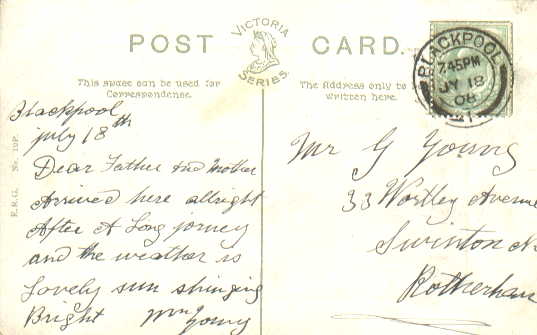 VICTORIA
SERIES
POST CARD.
This space can be used for
Correspondence.
The Address only to be
written here.
BLACKPOOL
7.45PM
JY 18
08
E.R.G. No. 19P.
Blackpool
july 18th
Dear Father And Mother
Arrived here allright
After A Long jorney
and the weather is
Lovely sun shinging
Bright Wm Young
Mr G Young
33 Wortley Avenue
Swinton N.
Rotherham